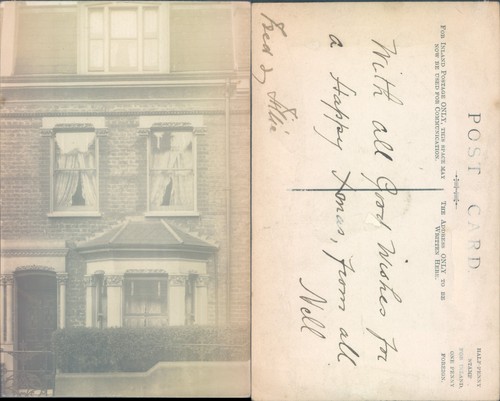 POST CARD
FOR INLAND POSTAGE ONLY, THIS SPACE MAY
NOW BE USED FOR COMMUNICATION.
THE ADDRESS ONLY TO BE
WRITTEN HERE.
HALF-PENNY
STAMP
FOR INLAND.
ONE PENNY
FOREIGN.
With all Good Wishes for
a Happy Xmas, from all
Nell